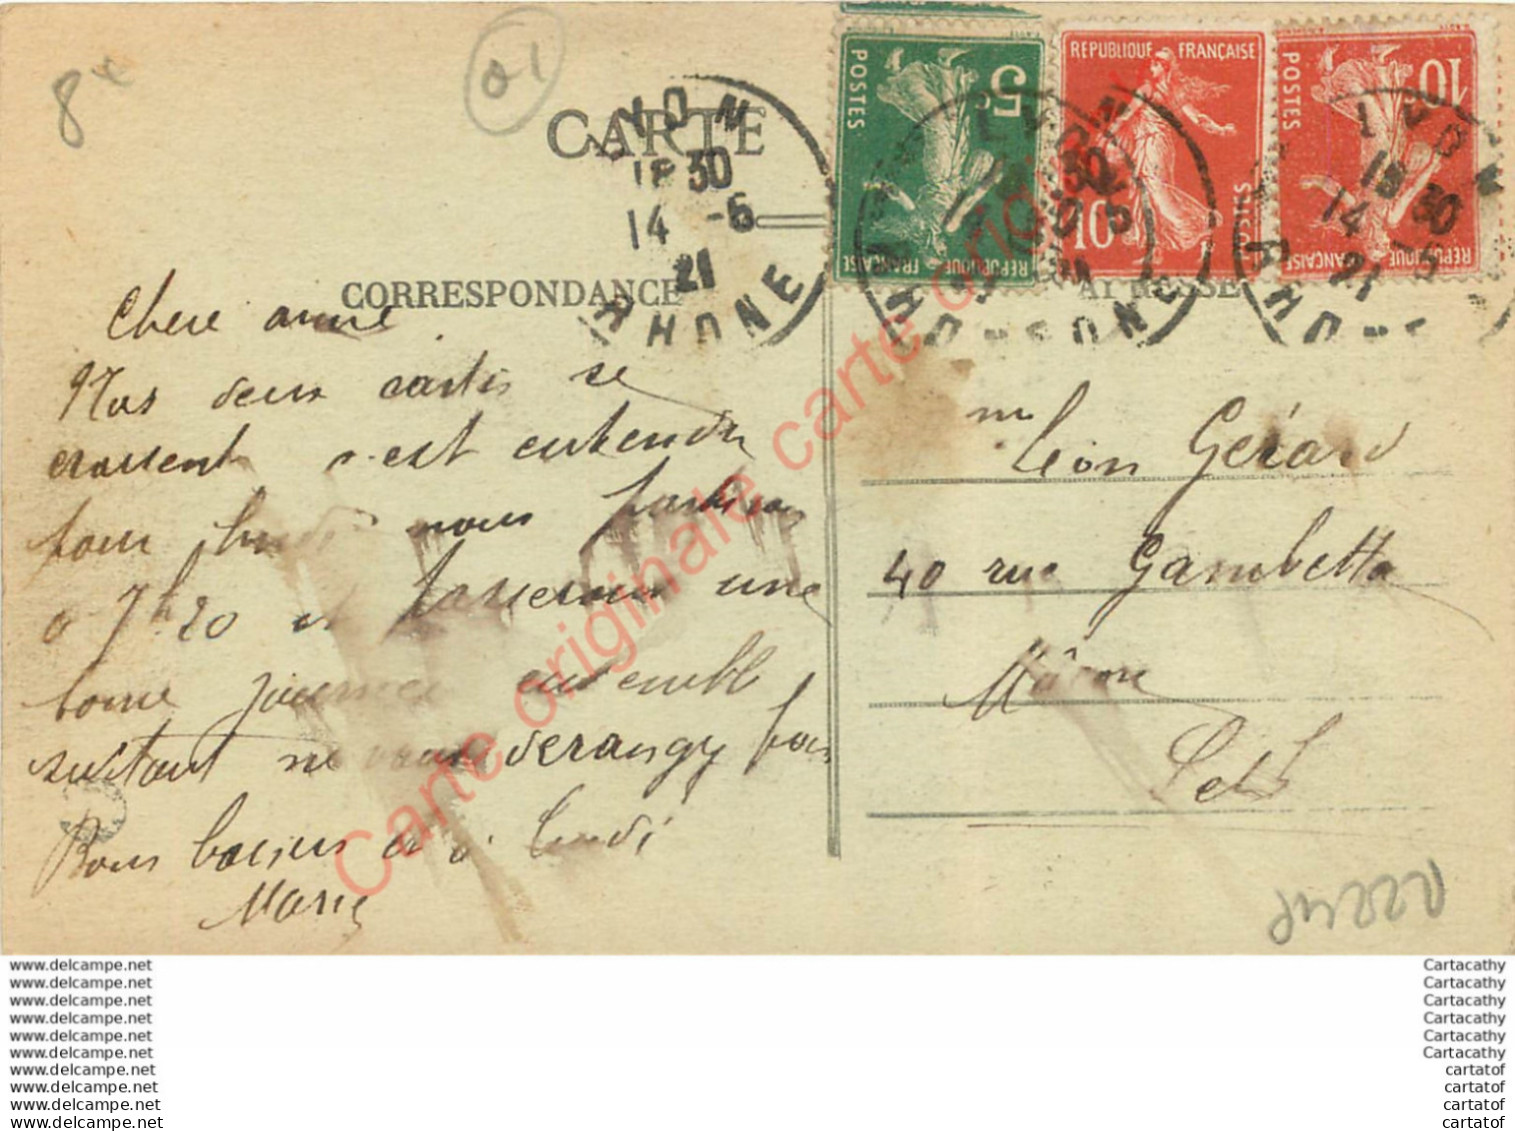 8€
01
CARTE
LYON
18 30
14 -5
21
RHONE
POSTES
5c
RÉPUBLIQUE FRANÇAISE
RÉPUBLIQUE FRANÇAISE
10
POSTES
10c
RÉPUBLIQUE FRANÇAISE
LYON
18 30
14 -5
21
RHONE
CORRESPONDANCE
ADRESSE
Chere amie
Nos deux cartes se
croissent c'est entendu
pour lundi nous partirons
a 7h20 et passerons une
bonne journee ensemble
surtout ne vous derangez pas
Bons baisers et a lundi
Marie
Léon Gérard
40 rue Gambetta
Mâcon
Carte originale carte originale
www.delcampe.net
www.delcampe.net
www.delcampe.net
www.delcampe.net
www.delcampe.net
www.delcampe.net
www.delcampe.net
www.delcampe.net
www.delcampe.net
www.delcampe.net
Cartacathy
Cartacathy
Cartacathy
Cartacathy
Cartacathy
Cartacathy
cartatof
cartatof
cartatof
cartatof